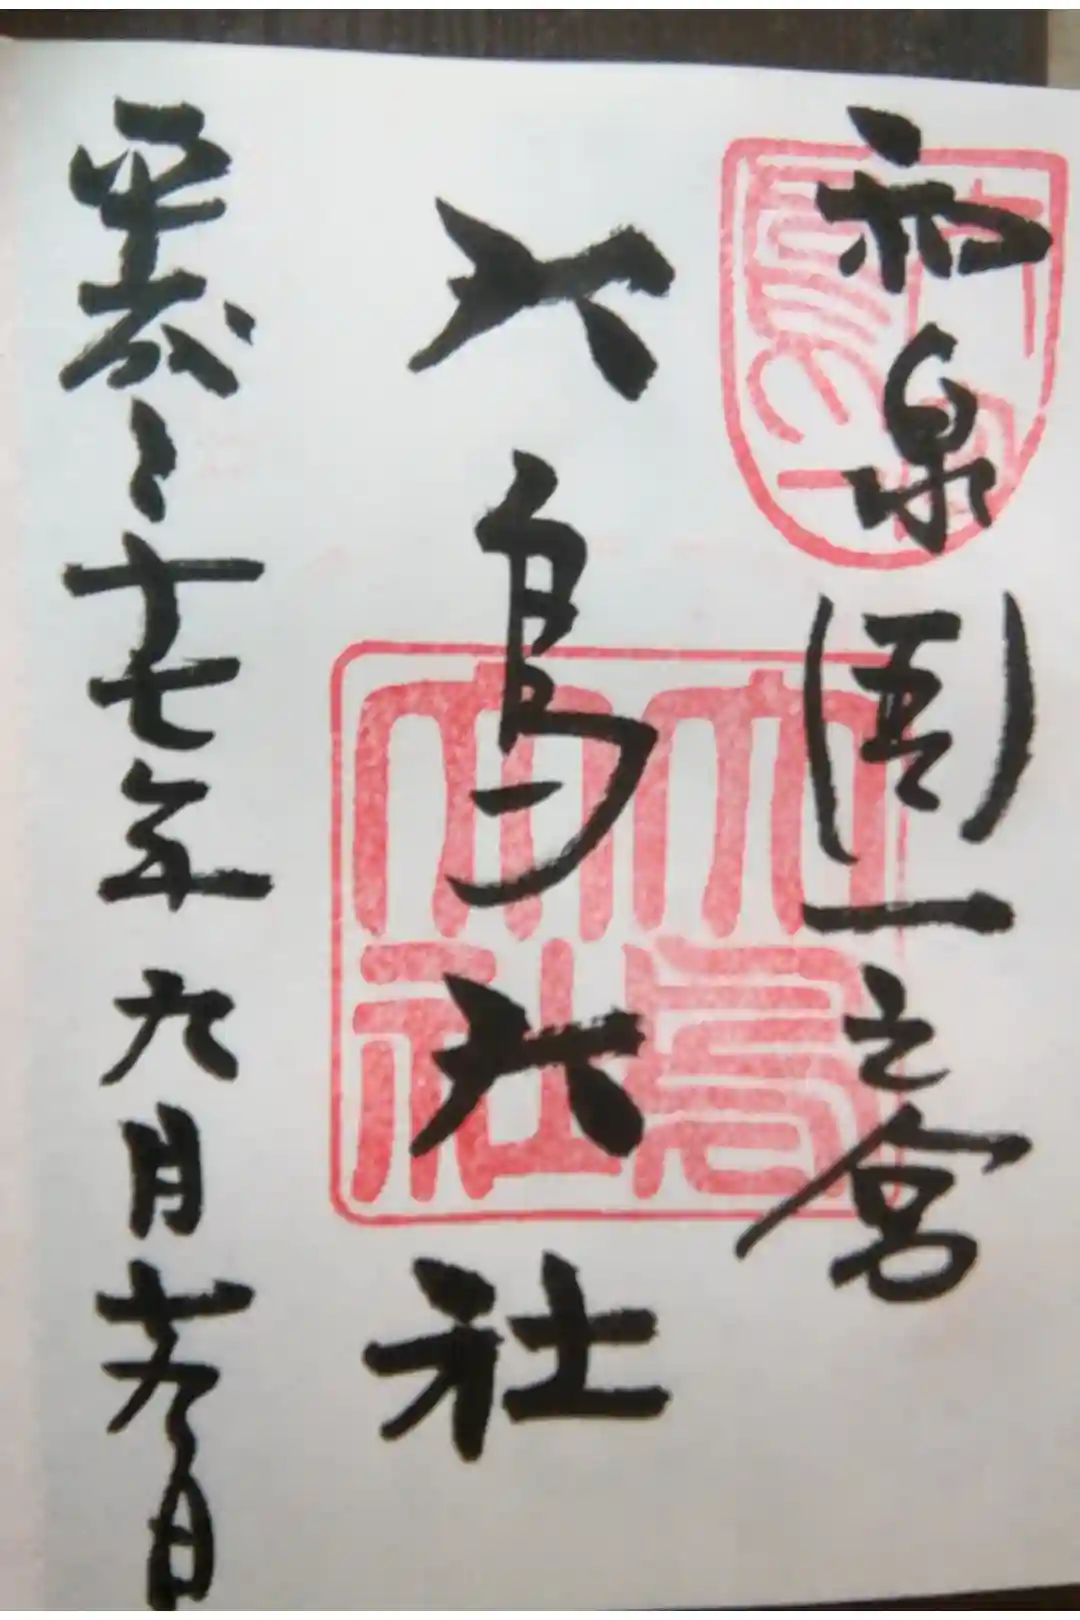 和泉國一之宮
大鳥大社
平成二十七年九月十九日
大鳥
大社